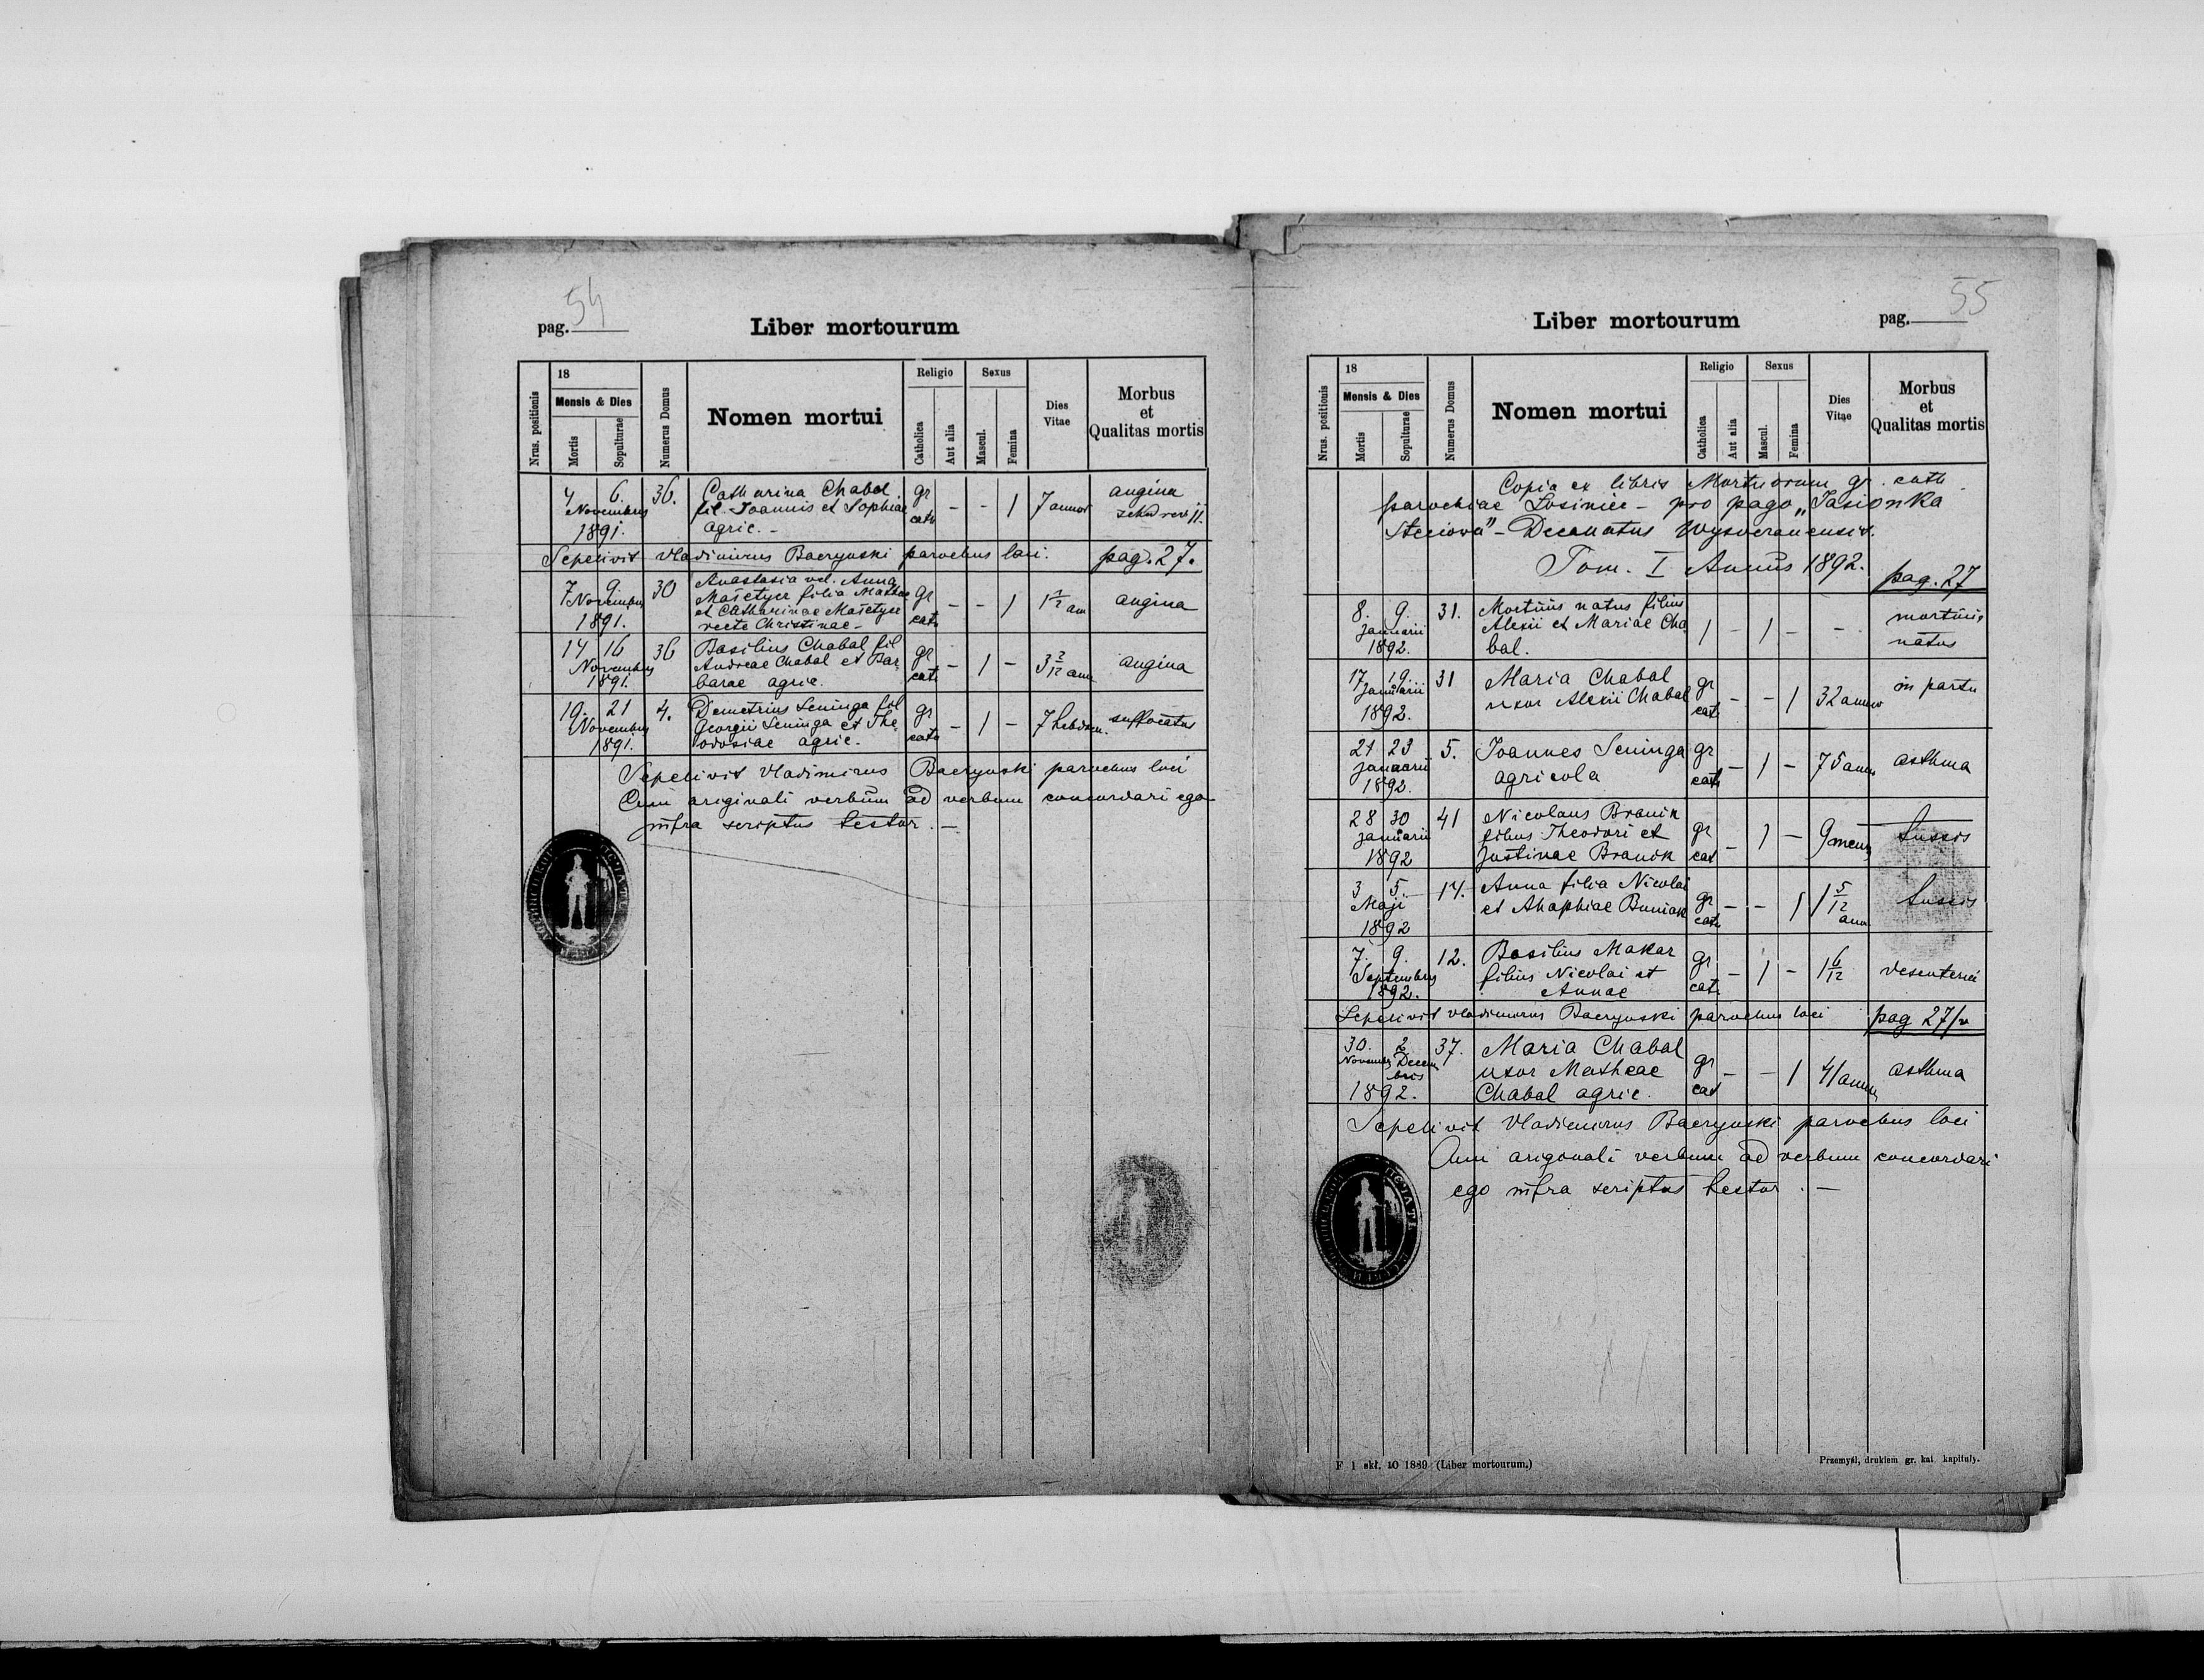 pag. 54
Liber mortourum
Nrus. positionis
18
Mensis & Dies
Mortis
Sepulturae
Numerus Domus
Nomen mortui
Religio
Catholica
Aut alia
Sexus
Mascul.
Femina
Dies
Vitae
Morbus
et
Qualitas mortis
4 6. 36. Catharina Chabal gr - - 1 7 annor angina
Novembris fil. Joannis et Sophiae cath
1891. agric. -
Sepelivit Vladimirus Baczynski parochus loci. pag. 27.
7 9. 30 Anastasia vel. Anna gr - - 1 1 angina
Novembris filia cath
1891. et Catharinae
recte Christinae -
14 16 36 Basilius Chabal fil gr - 1 - 3 2/12 ann angina
Novembris Andreae Chabal et Bar cath
1891. barae agric.
19. 21 4. Demetrius Seninga fil gr - 1 - 7 hebdom. suffocatus
Novembris Georgii Seninga et The cath
1891. odosiae agric.
Sepelivit Vladimirus Baczynski parochus loci
Cum originali verbum ad verbum concordari ego
infra scriptus testor. -
55
Liber mortourum
pag.
Nrus. positionis
18
Mensis & Dies
Mortis
Sepulturae
Numerus Domus
Nomen mortui
Religio
Catholica
Aut alia
Sexus
Mascul.
Femina
Dies
Vitae
Morbus
et
Qualitas mortis
Copia ex libris Mortuorum gr. cath.
parochiae Losiniec - pro pago „Jasionka
Steciova" - Decanatus Wysoczanensis.
Tom. I Annus 1892. pag. 27
8. 9. 31. Mortuus natus filius 1 - 1 - - mortuus
Januarii Alexii et Mariae Cha natus
1892. bal.
17 19. 31 Maria Chabal gr - - 1 32 annor in partu
Januarii uxor Alexii Chabal cath
1892.
21 23 5. Joannes Seninga gr - 1 - 75 annor asthma
Januarii agricola cath
1892.
28 30 41 Nicolaus Branik gr - 1 - 9 mens tussis
Januarii filius Theodori et cat
1892 Justinae Branik
3 5. 14. Anna filia Nicolai gr - - 1 1 5/12 ann tussis
Maji et Ahaphiae cath
1892
7. 9. 12. Basilius Makar gr - 1 - 1 6/12
Septembris filius Nicolai et cat.
1892. Annae
Sepelivit Vladimirus Baczynski parochus loci pag 27/v
30. 2 37. Maria Chabal gr - - 1 41 annor asthma
Novembr Decem uxor Matheae cat
bris
1892. Chabal agric.
Sepelivit Vladimirus Baczynski parochus loci
Cum arigonali verbum ad verbum concordari
ego infra scriptus testor. -
F 1 skł. 10 1889 (Liber mortourum.)
Przemyśl, drukiem gr. kat. kapituły.